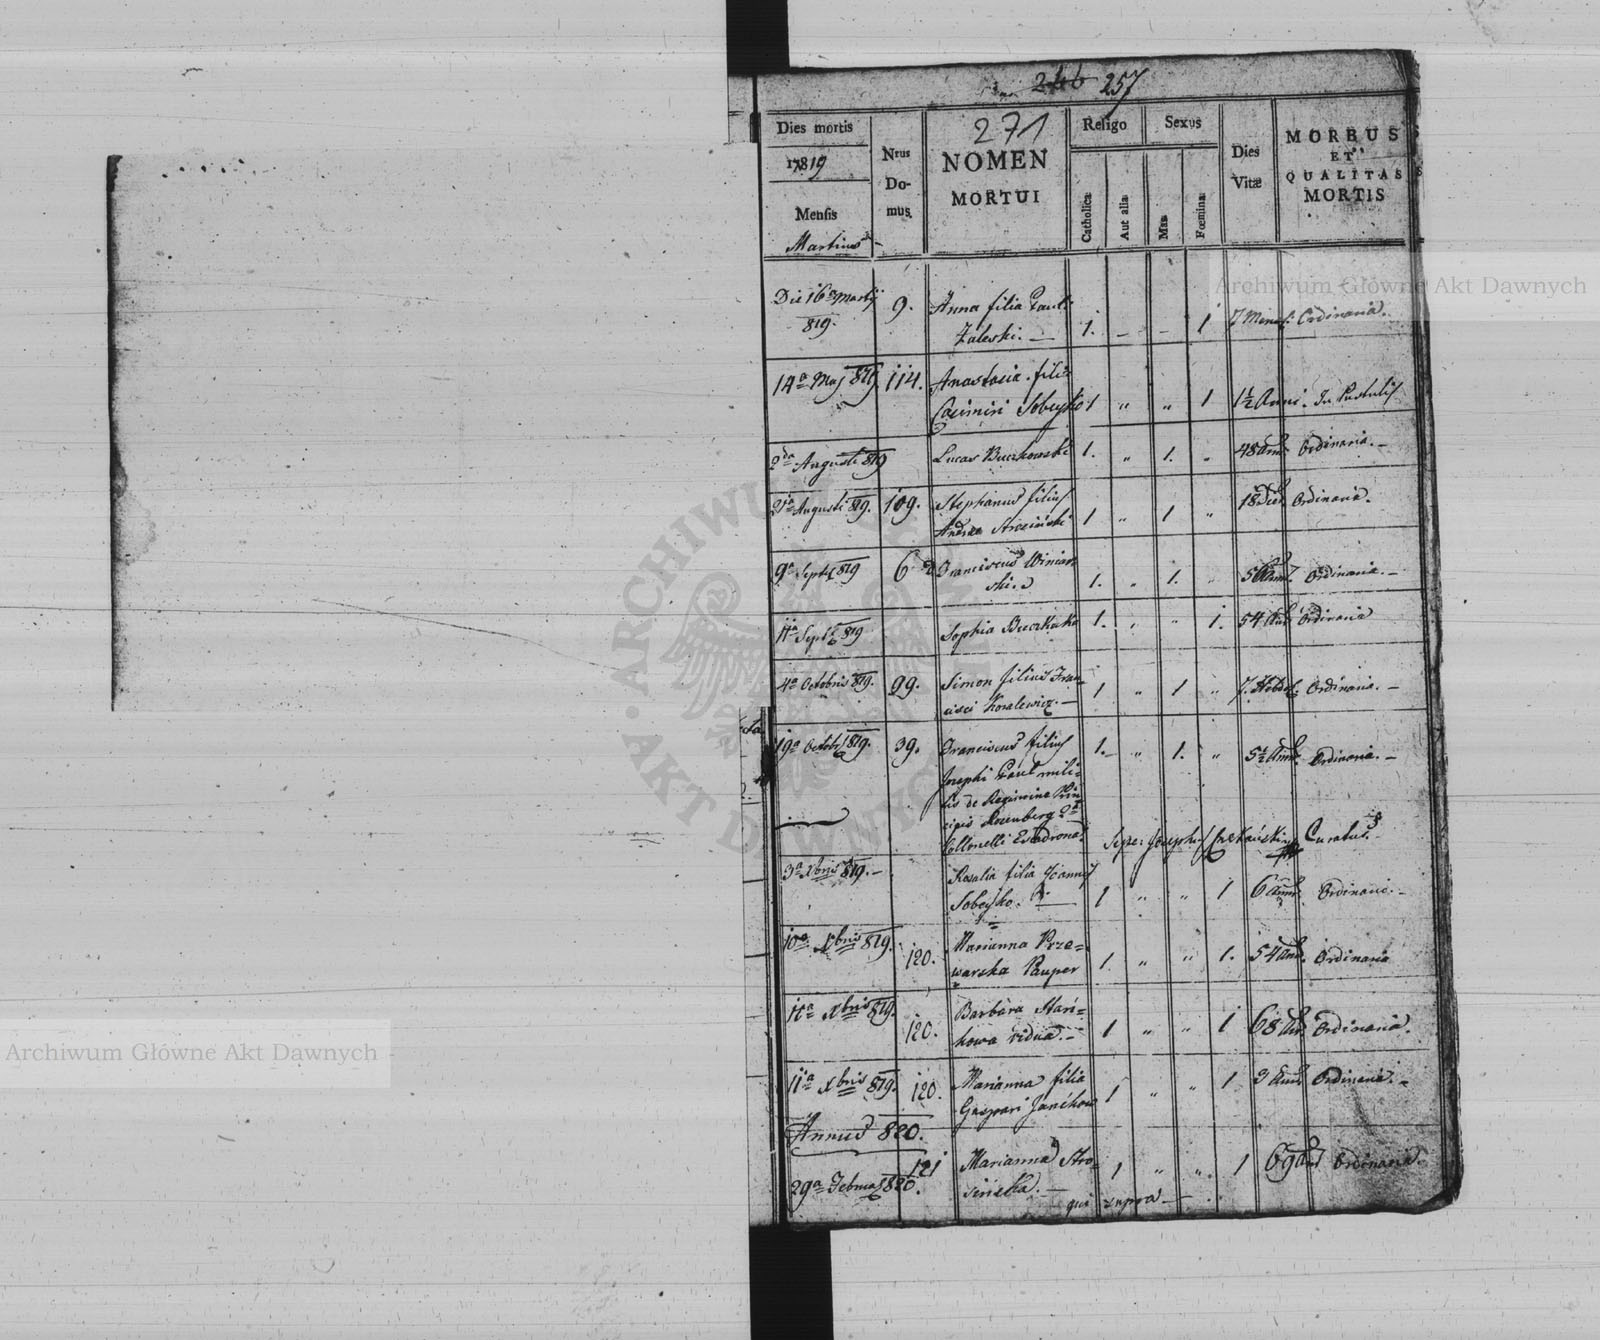 246 257
271
Dies mortis
17819
Mensis
Martius
Nrus
Do-
mus
NOMEN
MORTUI
Religo
Catholica
Aut alia
Sexus
Mas
Fœmina
Dies
Vitæ
MORBUS
ET
QUALITAS
MORTIS
Die 16a Martij 9. Anna filia Pauli
819. Zaleski. — 1. — — 1 7 Mens: Ordinaria.
14a Maj 819 114. Anastasia fili:
Casimiri Sobeyko 1 „ „ 1 1½ Anni. In Pustulis
2da Augusti 819 Lucas Buczkowski 1. „ 1. „ 48 Ann Ordinaria. —
21a Augusti 819. 109. Stephanus filius
Andreæ 1 „ 1 „ 18 Dier Ordinaria.
9a Septe 819 6 Franciscus Winiar
ski. 1. „ 1. „ Ordinaria. —
11a Septe 819 Sophia 1. „ „ 1. 54 Ann Ordinaria
4a Octobris 819. 99. Simon filius Fran
cisci Kowalewicz. — 1 „ 1 „ 7. Hebd: Ordinaria. —
19a Octobr 819. 39. Franciscus filius 1. „ 1. „ 5½ Ann Ordinaria. —
Josephi Paul mili-
tis de Regimine Prin
cipis Rosenberg 2
Collonelli Esadrona
Josephus Curatus
3a Xbris 819. — Rosalia filia Joannis
Sobeyko. 1 „ „ 1 6 Ann Ordinaria. —
10a Xbris 819. 120. Marianna Prze=
warska Pauper 1. „ „ 1. 54 Ann. Ordinaria
11a Xbris 819. 120. Barbara Stani=
kowa vidua. — 1 „ „ 1 68 An Ordinaria.
11a Xbris 819. 120. Marianna filia
Gaspari 1 „ „ 1 3 Ann Ordinaria. —
Annus 820.
29a Februa 820. 121 Marianna Stro=
sińska. — 1 „ „ 1 69 Ann Ordinaria.
qui supra —
Archiwum Główne Akt Dawnych
Archiwum Główne Akt Dawnych
ARCHIWUM GŁÓWNE AKT DAWNYCH